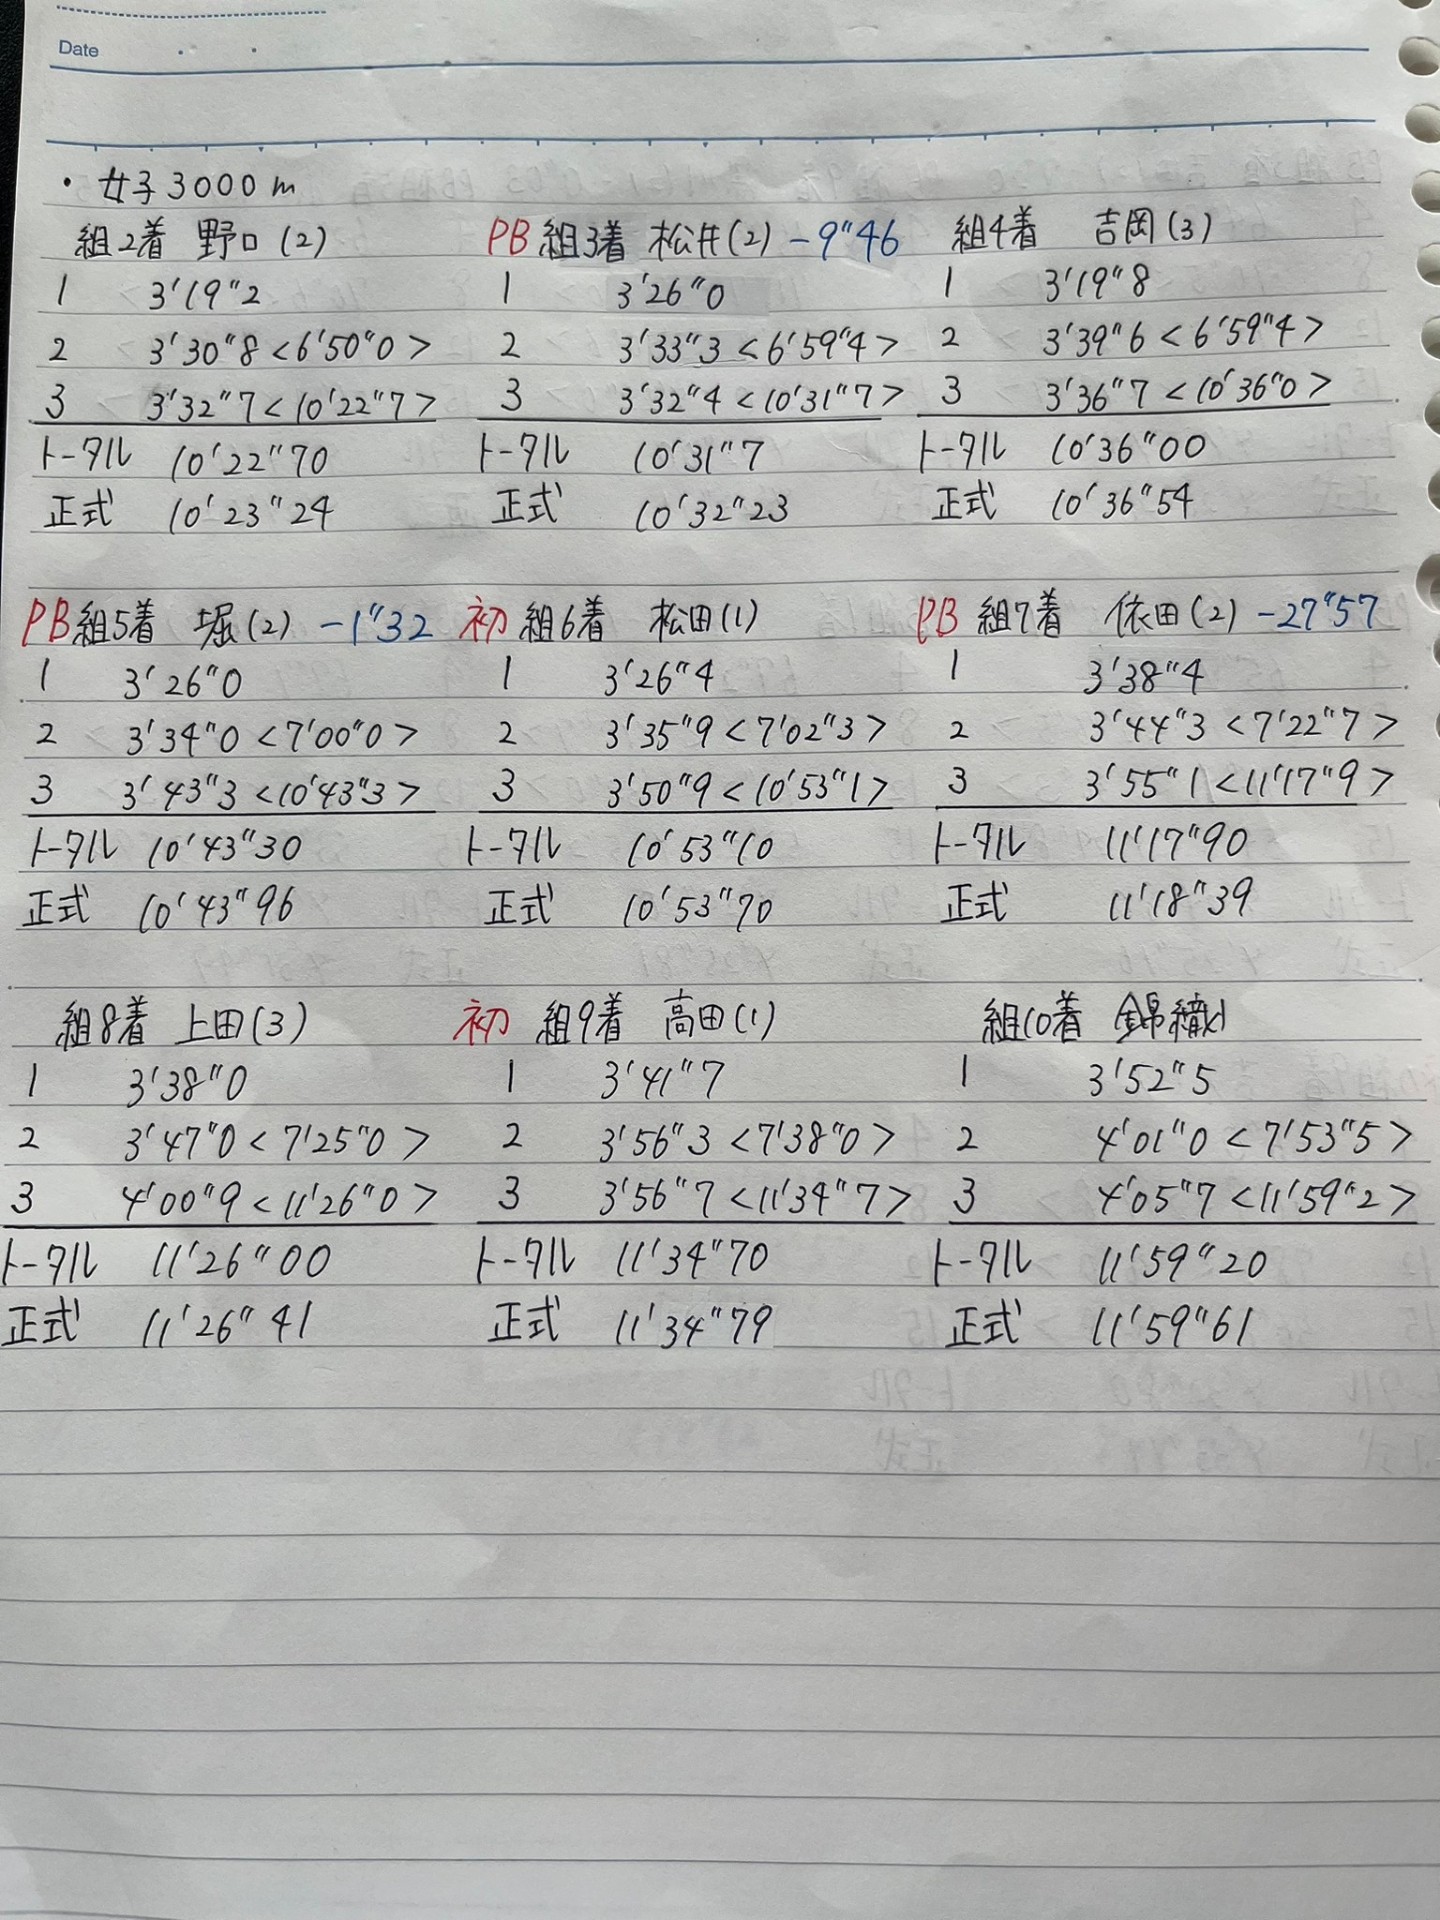 Date
・女子3000m
組2着 野口(2)
1 3'19"2
2 3'30"8<6'50"0>
3 3'32"7<10'22"7>
トータル 10'22"70
正式 10'23"24
PB組3着 松井(2) -9"46
1 3'26"0
2 3'33"3<6'59"4>
3 3'32"4<10'31"7>
トータル 10'31"7
正式 10'32"23
組4着 吉岡(3)
1 3'19"8
2 3'39"6<6'59"4>
3 3'36"7<10'36"0>
トータル 10'36"00
正式 10'36"54
PB組5着 堀(2) -1"32
1 3'26"0
2 3'34"0<7'00"0>
3 3'43"3<10'43"3>
トータル 10'43"30
正式 10'43"96
初 組6着 松田(1)
1 3'26"4
2 3'35"9<7'02"3>
3 3'50"9<10'53"1>
トータル 10'53"10
正式 10'53"70
PB 組7着 依田(2) -27"57
1 3'38"4
2 3'44"3<7'22"7>
3 3'55"1<11'17"9>
トータル 11'17"90
正式 11'18"39
組8着 上田(3)
1 3'38"0
2 3'47"0<7'25"0>
3 4'00"9<11'26"0>
トータル 11'26"00
正式 11'26"41
初 組9着 高田(1)
1 3'41"7
2 3'56"3<7'38"0>
3 3'56"7<11'34"7>
トータル 11'34"70
正式 11'34"79
組10着 錦織
1 3'52"5
2 4'01"0<7'53"5>
3 4'05"7<11'59"2>
トータル 11'59"20
正式 11'59"61